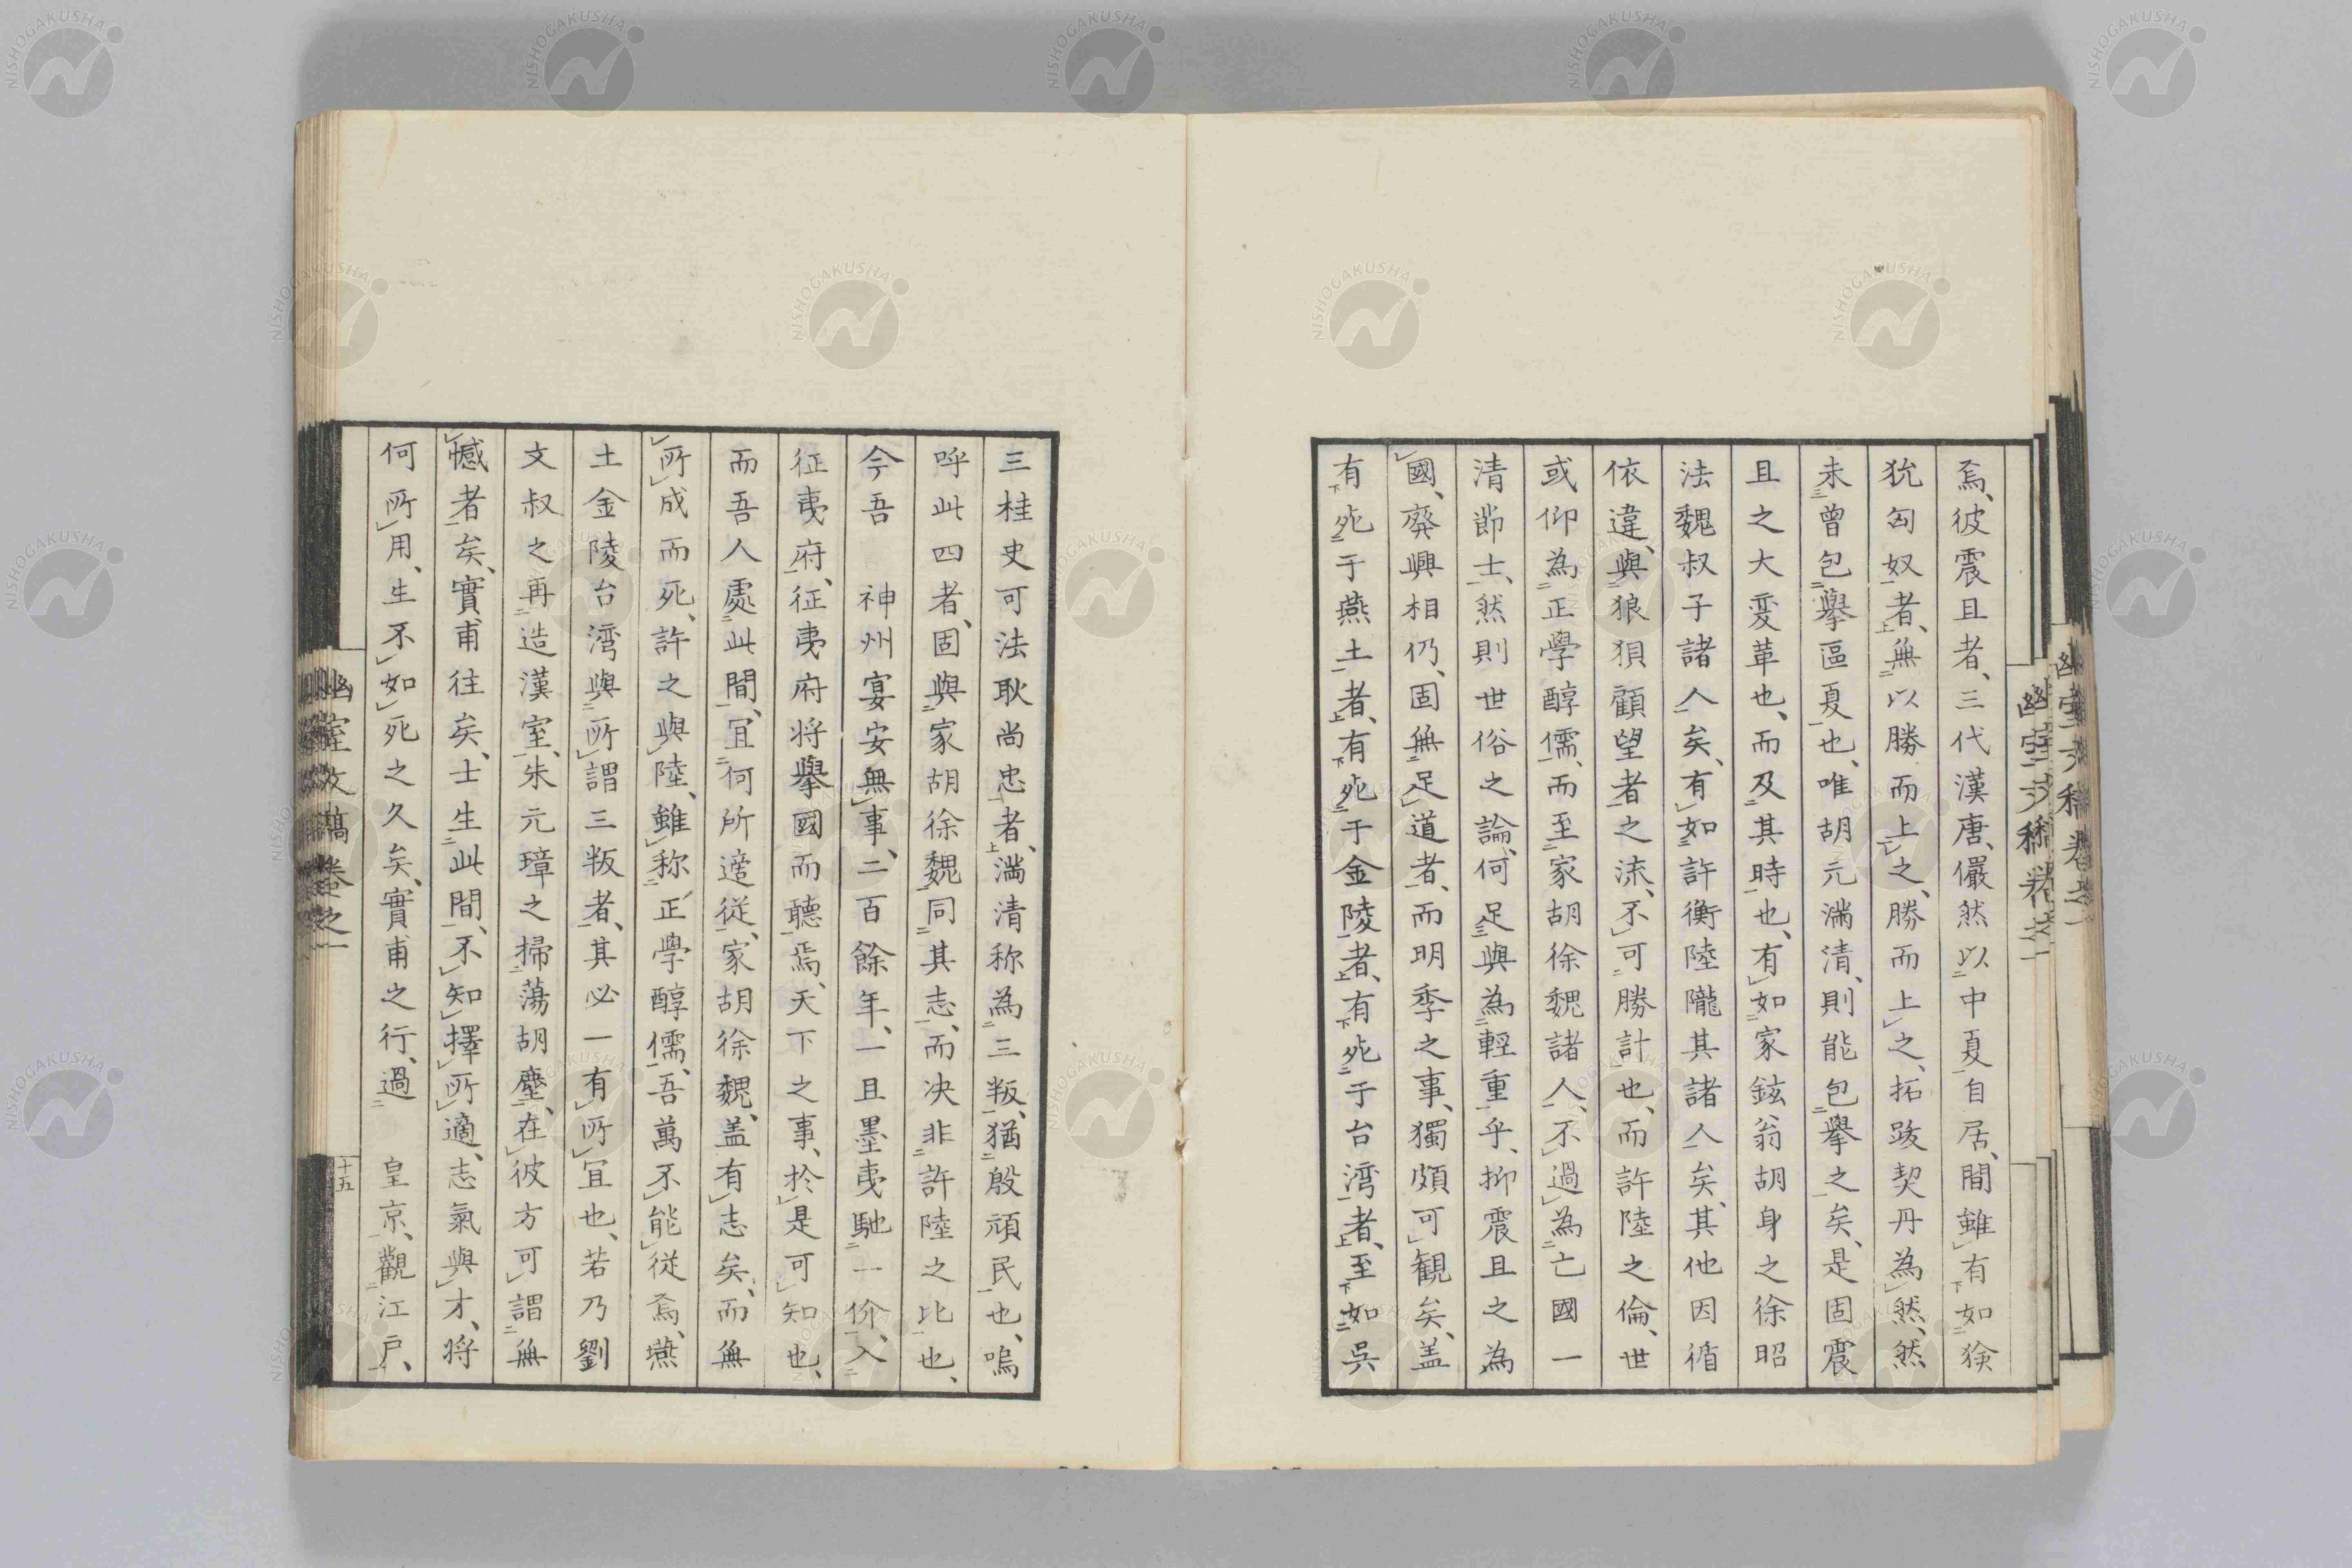 焉、彼震且者、三代漢唐、儼然以中夏自居、間雖有如獫
狁匈奴者、無以勝而上之、勝而上之、拓跋契丹為然、然
未曾包擧區夏也、唯胡元満清、則能包擧之矣、是固震
且之大変革也、而及其時也、有如家鉉翁胡身之徐昭
法魏叔子諸人矣、有如許衡陸隴其諸人矣、其他因循
依違、與狼狽顧望者之流、不可勝計也、而許陸之倫、世
或仰為正學醇儒、而至家胡徐魏諸人、不過為亡國一
清節士、然則世俗之論、何足與為輕重乎、抑震且之為
國、廃興相仍、固無足道者、而明季之事、獨頗可観矣、盖
有死于燕土者、有死于金陵者、有死于台湾者、至如呉
三桂史可法耿尚忠者、満清称為三叛、猶殷頑民也、嗚
呼此四者、固與家胡徐魏同其志、而决非許陸之比也、
今吾 神州宴安無事、二百餘年、一且墨夷馳一价、入
征夷府、征夷府将擧國而聽焉、天下之事、於是可知也、
而吾人處此間、冝何所適従、家胡徐魏、盖有志矣、而無
所成而死、許之與陸、雖称正學醇儒、吾萬不能従焉、燕
土金陵台湾與所謂三叛者、其必一有所冝也、若乃劉
文叔之再造漢室、朱元璋之掃蕩胡塵、在彼方可謂無
憾者矣、實甫往矣、士生此間、不知擇所適、志氣與才、将
何所用、生不如死之久矣、實甫之行、過 皇京、觀江戸、
幽室文稿卷之一
十五